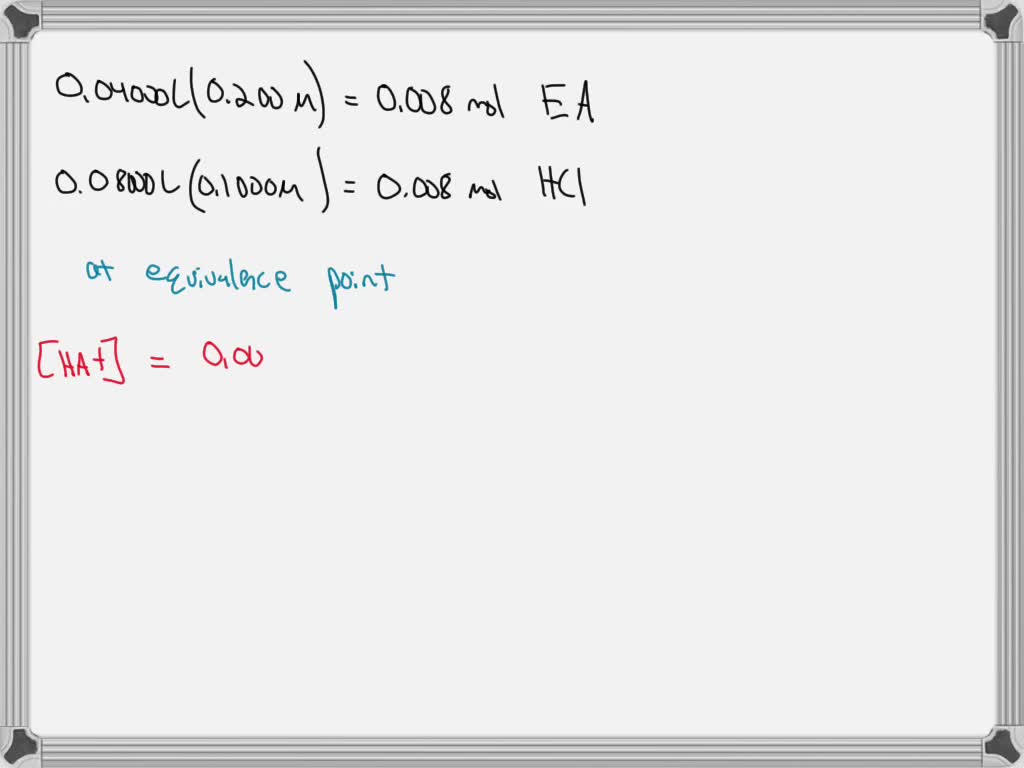 0.04000L(0.200M) = 0.008 mol EA
0.0800L(0.1000M) = 0.008 mol HCl
at equivalence point
[HA+] = 0.00